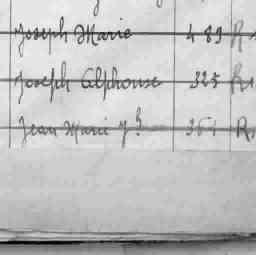 Joseph Marie 489 R
Joseph Alphonse 325 R
Jean Marie J h 361 R